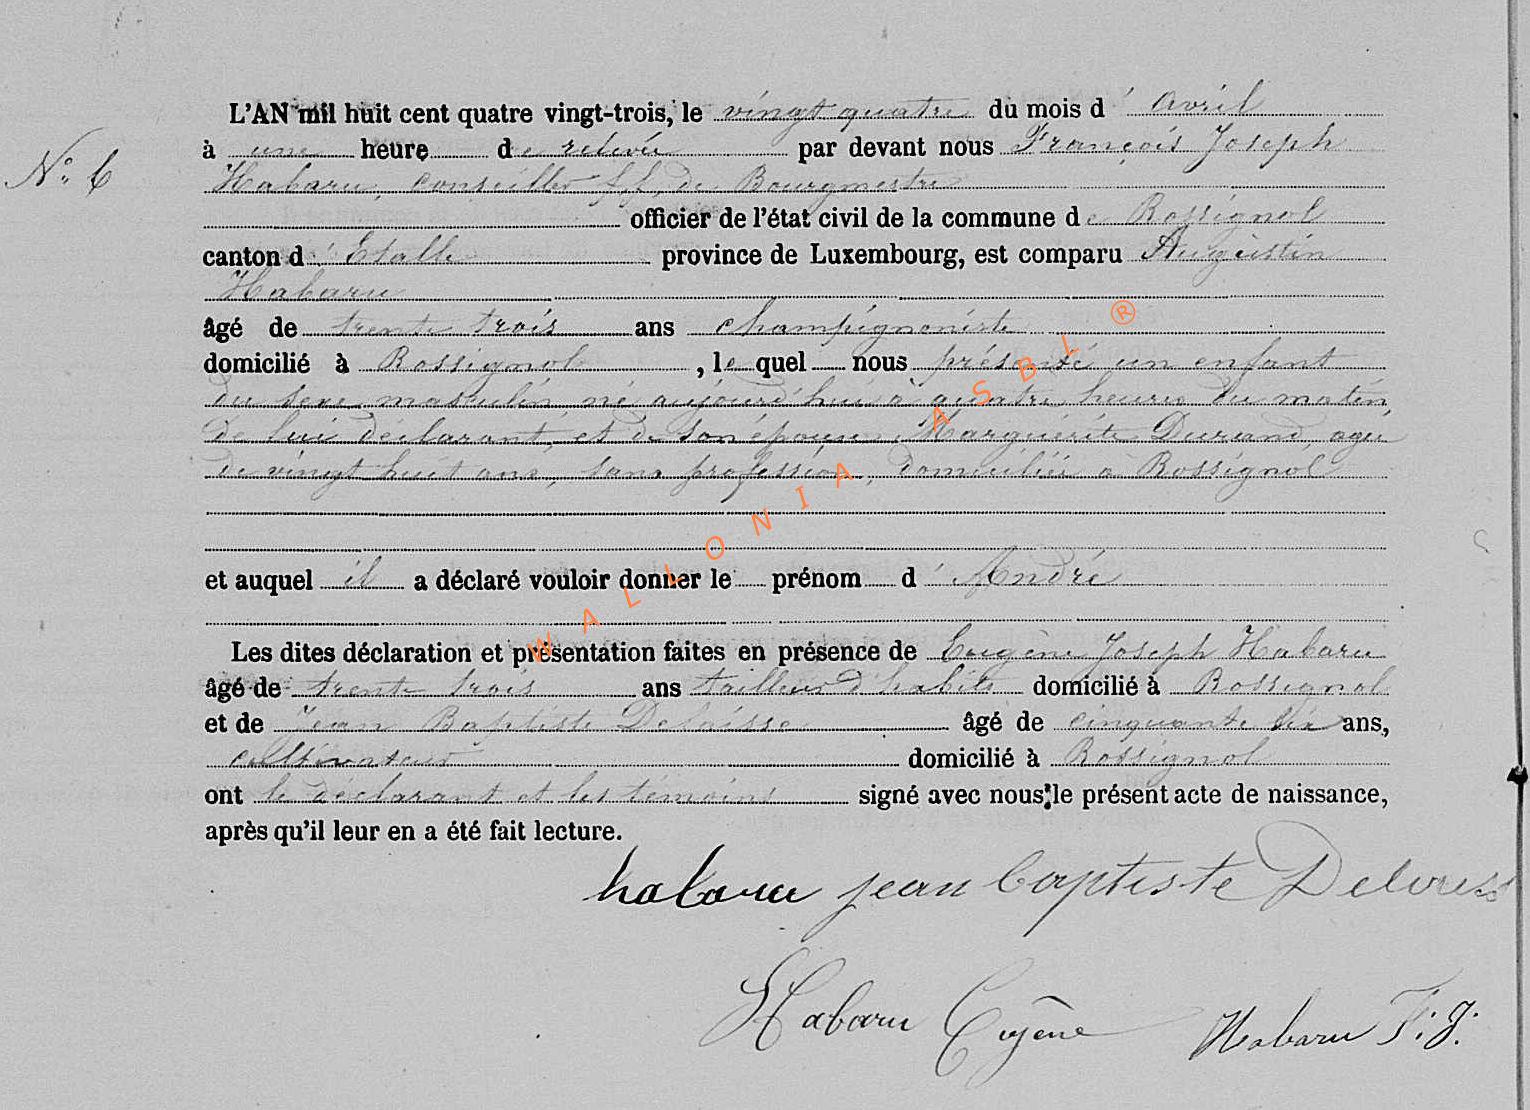 L'AN mil huit cent quatre vingt-trois, le vingt quatre du mois d'avril
N° 6
à une heure de relevée par devant nous François Joseph
Habaru, conseiller f.f. de Bourgmestre
officier de l'état civil de la commune de Rossignol
canton d'Etalle province de Luxembourg, est comparu Augustin
Habaru
âgé de trente trois ans champignoniste
domicilié à Rossignol, le quel nous présenté un enfant
du sexe masculin, né aujourd'hui à quatre heures du matin,
de lui déclarant, et de son épouse Marguérite Durand, agée
de vingt huit ans, sans profession, domiciliée à Rossignol
et auquel il a déclaré vouloir donner le prénom d'André
Les dites déclaration et présentation faites en présence de Eugène Joseph Habaru
âgé de trente trois ans tailleur d'habits domicilié à Rossignol
et de Jean Baptiste Delaisse âgé de cinquante six ans,
cultivateur domicilié à Rossignol
ont le déclarant et les témoins signé avec nous le présent acte de naissance,
après qu'il leur en a été fait lecture.
habaru jean baptiste
Habaru Eugène Habaru F. J.
WALLONIA ASBL ®